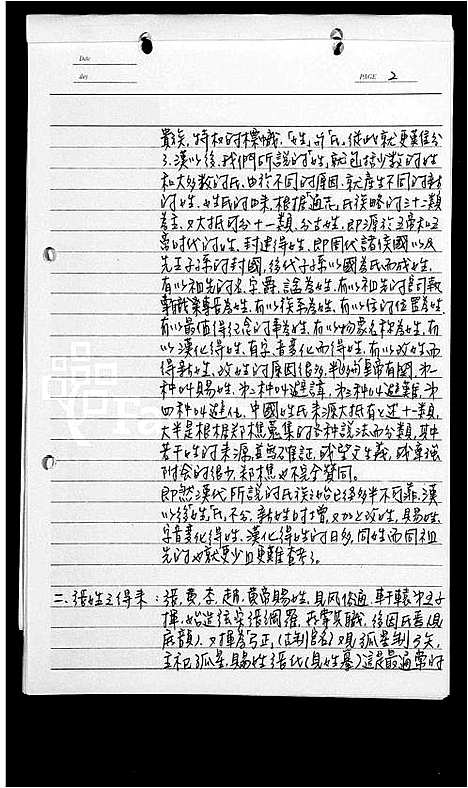 Date
day
PAGE 2
貴族,特权的標幟,「姓」示「氏」從此就更難分
了.漢以後,我們所說的「姓」,就包括少数的姓
和大多数的氏,由於不同的原因,就產生不同的新
的姓.姓氏的由來,根據「通志」氏族略的三十二類
為主,又大抵可分十一類,分古姓,即源於五帝和三
帝时代的姓,封建得姓,即周代諸侯國以及
先王子孫的封國,後代子孫以國為氏而成姓,
有以祖先的名,字,爵,謚為姓,有以祖先的官司執
職業專長為姓,有以徑系為姓,有以住的位置為姓
有以最值得纪念的事為姓,有以物象名称為姓,有
以漢化得姓,有字音变化而得姓,有以改姓而
得新姓,改姓的原因很多,皇帝有關,第一
种叫賜姓,第二种叫避諱,第三种叫避難,第
四种叫避仇,中國姓氏來源大抵有上述十一類,
大半是根据郑樵蒐集的各种說法而分類,其中
若干姓的來源,並無確証,或望文生義,或牽強
附会的很少,郑樵也不完全贊同.
即然漢代所說的氏族之始已經多半不可靠,漢
以後「姓」「氏」不分,新姓的增,又加上改姓,賜姓,
字音变化得姓,漢化得姓的日多,同姓而同祖
先的也就更少且更難查考了.
二、張姓之得來:張,黄,李,趙,黄帝賜姓,見风俗通,軒轅第五子
揮,始造弦宗張網羅,世掌其職,後因氏焉(見
唐韻).又揮為弓正,(古制官名)观弧星制弓矢,
主祀弧星,賜姓張代(見姓纂)這是最通常的